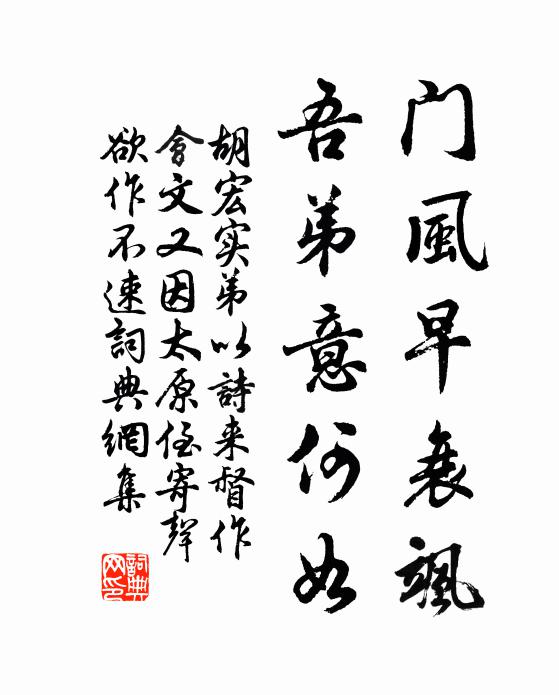 门風早衰飒
吾弟意何如
胡宏实弟以詩来督作
會文又因太原侄寄聲
欲作不速詞典網集
詞典网印